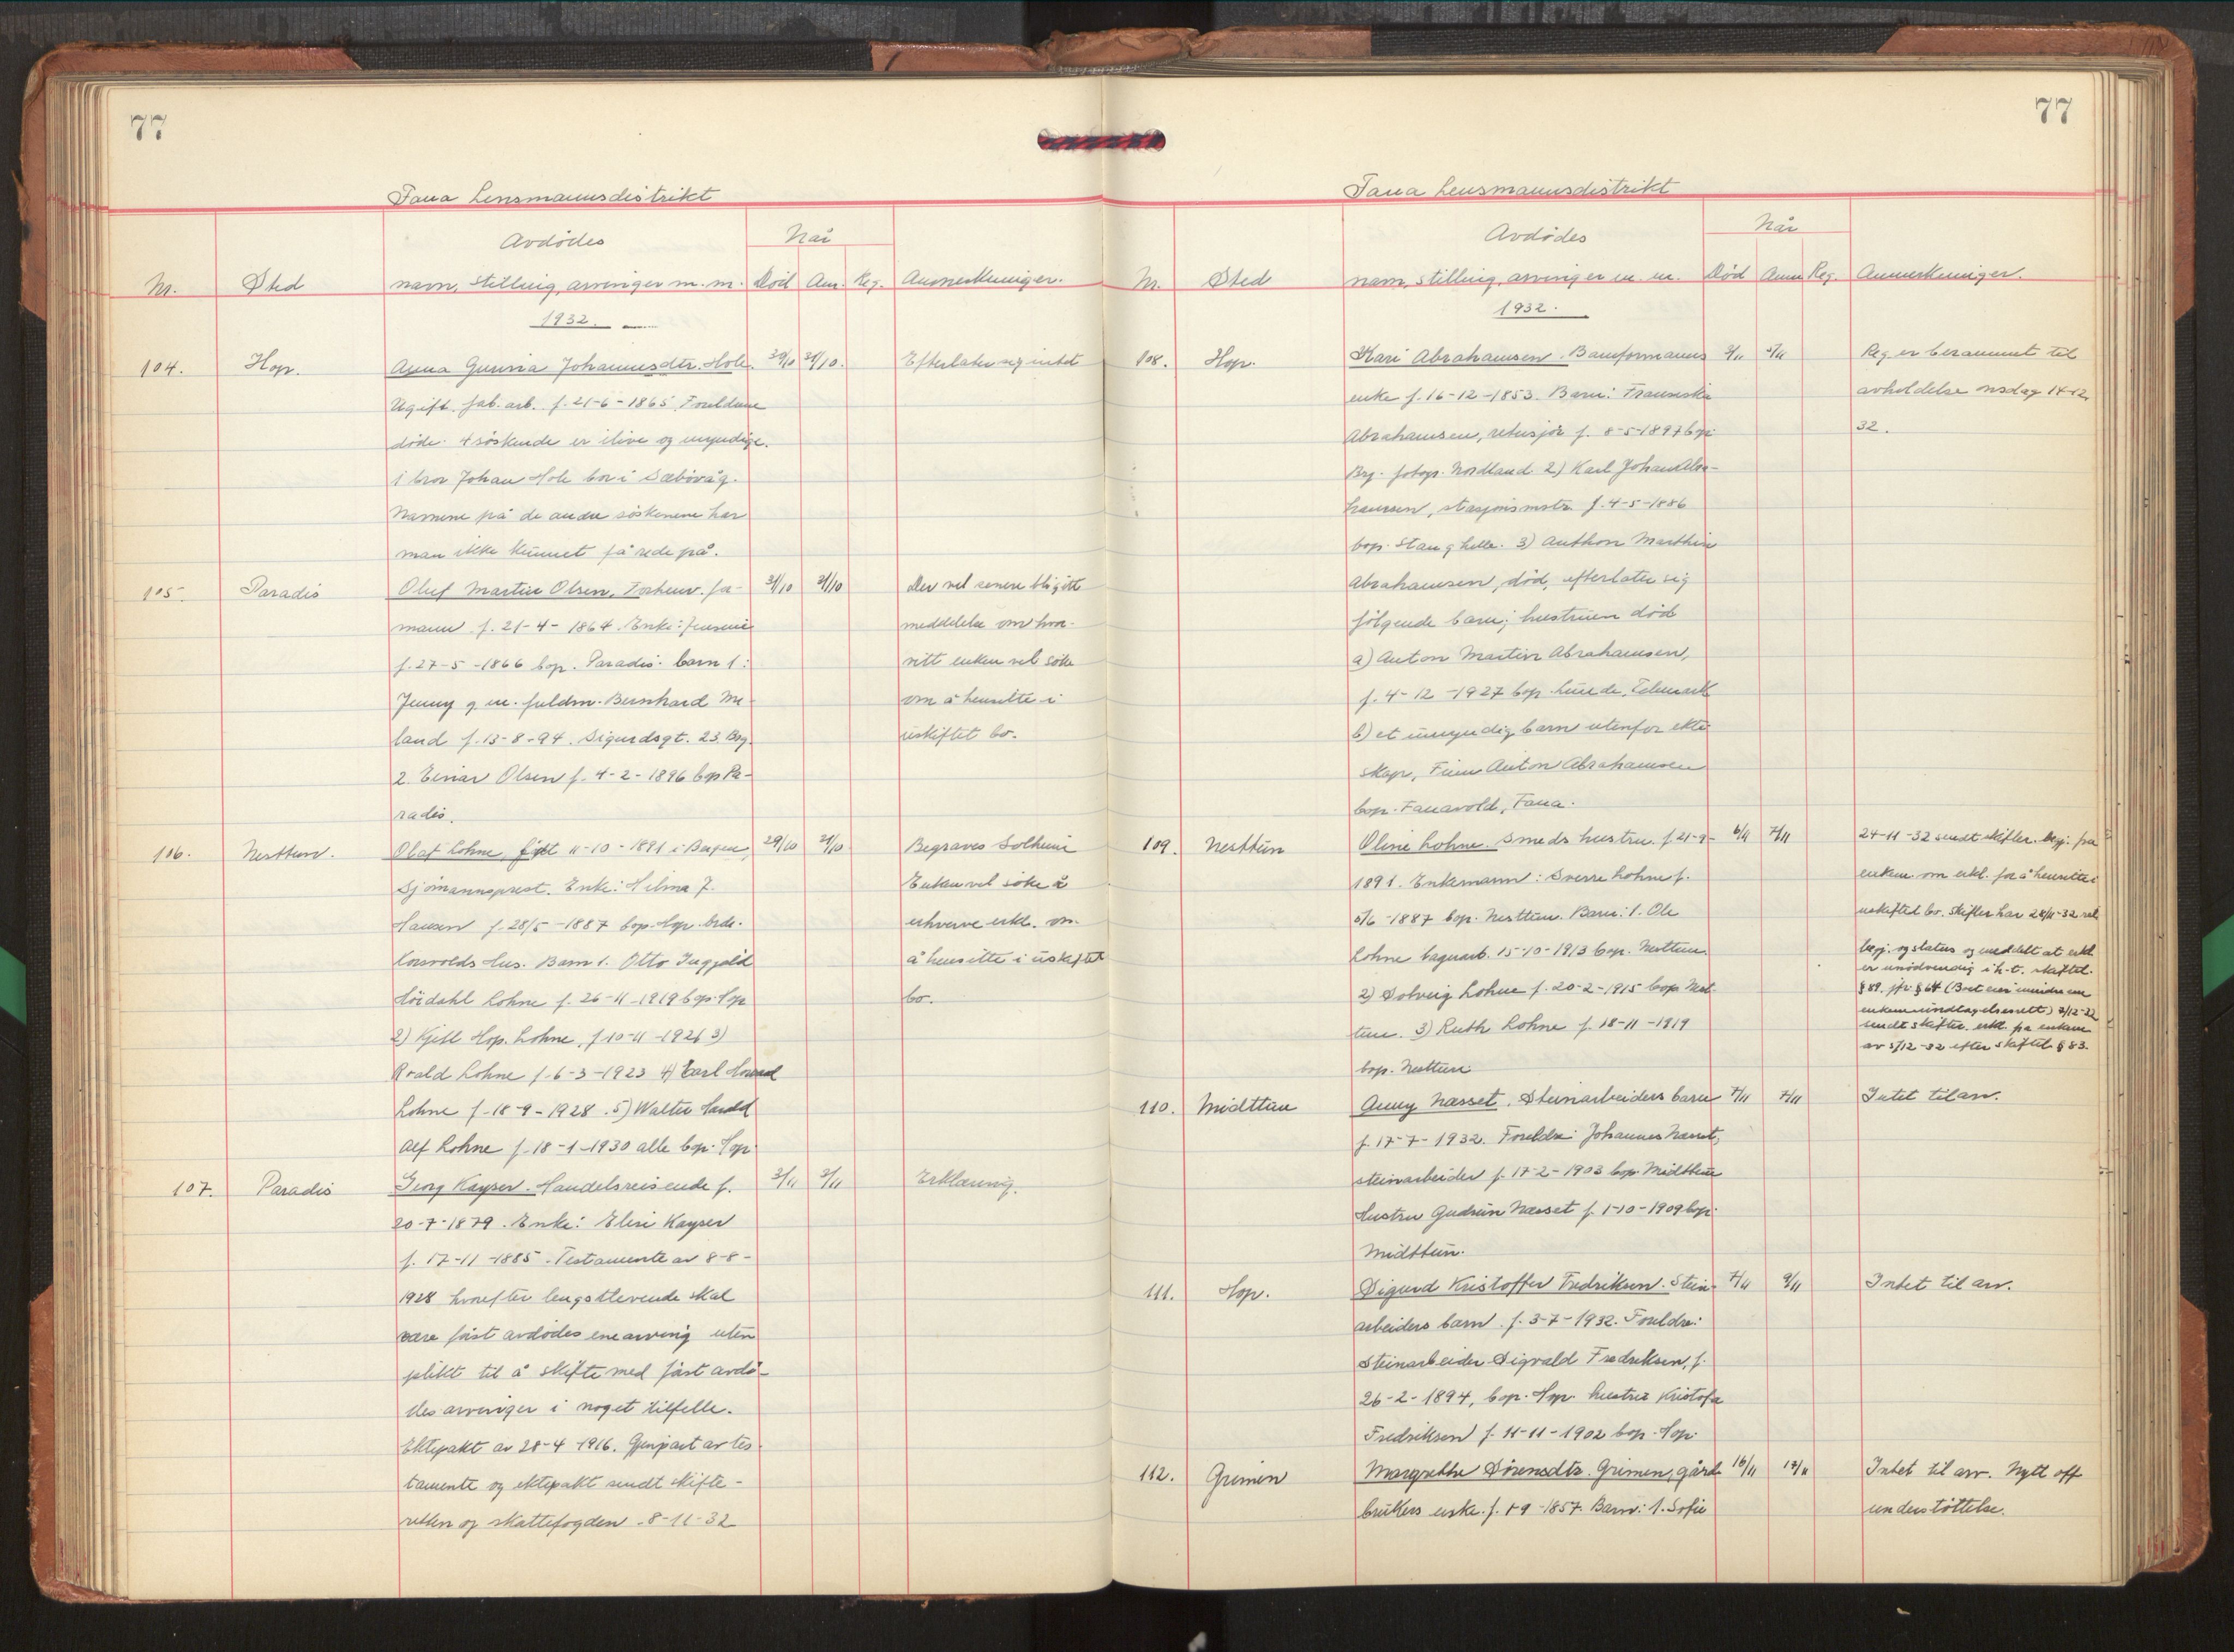 77
Fana Lensmannsdistrikt
Avdødes
Når
Nr.
Sted
navn, stilling, arvinger m. m.
Død
Anm.
Reg.
Anmerkninger.
1932.
104.
Hop.
Anna Gurina Johannesdtr. Hole.
30/10
31/10.
Efterlater sig intet
Ugift. fab. arb. f. 21-6-1865. Foreldrene
døde. 4 søskende er ilive og myndige.
1 bror Johan Hole bor i Sæbøvåg.
Navnene på de andre søskenene har
man ikke kunnet få rede på.
105.
Paradis
Oluf Martin Olsen. Forhenv. for-
31/10
31/10
Der vil senere bli gitt
mann. f. 21-4-1864. Enke: Jensine
meddelelse om hvor-
f. 27-5-1866 bop. Paradis. barn 1:
vitt enken vil søke
Jenny g. m. fuldm. Bernhard Me-
om å hensitte i
land f. 13-8-94. Sigurdsgt. 23, Brg.
uskiftet bo.
2. Einar Olsen f. 4-2-1896 bop Pa-
radis.
106.
Nesttun.
Olaf Lohne, født 11-10-1891 i Bergen,
29/10
31/10
Begraves Solheim
Sjømannsprest. Enke: Hilma J.
Enken vil søke å
Hansen f. 28/5-1887 bop. Hop.
erhverve erkl. om
Hus. Barn 1. Otto Ingjald
å hensitte i uskiftet
Lohne f. 26-11-1919 bop. Hop
bo.
2) Kjell Hop. Lohne, f 10-11-1921 3)
Roald Lohne f. 6-3-1923 4) Carl
Lohne f. 18-9-1928. 5) Walter Harald
Alf Lohne f. 18-1-1930 alle bop. Hop.
107.
Paradis
Georg Kayser. Handelsreisende f.
3/11
3/11
Erklæring.
20-7-1879. Enke: Elise Kayser
f. 17-11-1885. Testamente av 8-8-
1928 hvorefter lengstlevende skal
være først avdødes enearving uten
plikt til å skifte med først avdø-
des arvinger i noget tilfelle.
Ektepakt av 28-4 1916. Gjenpart av tes-
tamente og ektepakt sendt skifte-
retten og skattefogden. 8-11-32
77
Fana Lensmannsdistrikt
Avdødes
Når
Nr.
Sted
navn, stilling, arvinger m. m.
Død
Anm
Reg.
Anmerkninger.
1932.
108.
Hop.
Kari Abrahamsen. Baneformanns
Reg er berammet til
enke f. 16-12-1853. Barn: Franciska
avholdelse onsdag 14-12.
Abrahamsen, retusjør f. 8-5-1897 bop.
32.
Brg. fotogr. Nordland 2) Karl Johan Abra-
hamsen, stasjonsmstr. f. 4-5-1886
bop. Stanghelle. 3) Anthon Marthin
Abrahamsen, død, efterlater sig
følgende barn; hustruen død
a) Anton Martin Abrahamsen,
f. 4-12-1927 bop. Lunde, Telemark
b) et umyndig barn utenfor ekte
skap, Finn Anton Abrahamsen
bop. Fanavold, Fana.
109.
Nesttun
Oline Lohne. Smeds hustru. f 21-9-
6/11
7/11
24-11-32 sendt skifter. begj. fra
1891. Enkemann: Sverre Lohne f.
enkem. om erkl. for å hensitte i
5/6-1887 bop. Nesttun. Barn: 1. Ole
uskiftet bo. Skifter har 28/11-32
Lohne 15-10-1913 bop. Nesttun
begj. og status og meddelt at erkl.
er unødvendig i h. t. skiftel.
2) Solveig Lohne f. 20-2-1915 bop Nest-
§ 89. jfr. § 64 (Boet eier mindre enn
enkem. undtagelsesrett) 3/12-32
tun. 3) Ruth Lohne f. 18-11-1919
sendt skifter. erkl. fra enkem
av 3/12-32 efter skiftel. § 83.
bop. Nesttun
110.
Midttun
Anny Næsset. Steinarbeiders barn
7/11
7/11
Intet til arv.
f. 17-7-1932. Foreldre: Johannes Næsset,
steinarbeider f. 17-2-1903 bop Midttun
Hustru Gudrun Næsset f. 1-10-1909 bop.
Midttun.
111.
Hop.
Sigurd Kristoffer Fredriksen. Stein-
7/11
9/11
Intet til arv.
arbeiders barn. f. 3-7-1932. Foreldre:
Steinarbeider Sigvald Fredriksen, f.
26-2-1894, bop. Hop. hustru Kristofa
Fredriksen f. 11-11-1902 bop. Hop.
112.
Grimen
Margrethe Sørensdtr. Grimen, gård-
16/11
17/11
Intet til arv. Nytt off
brukers enke. f. 1-9-1857. Barn: 1. Sofie
understøttelse.